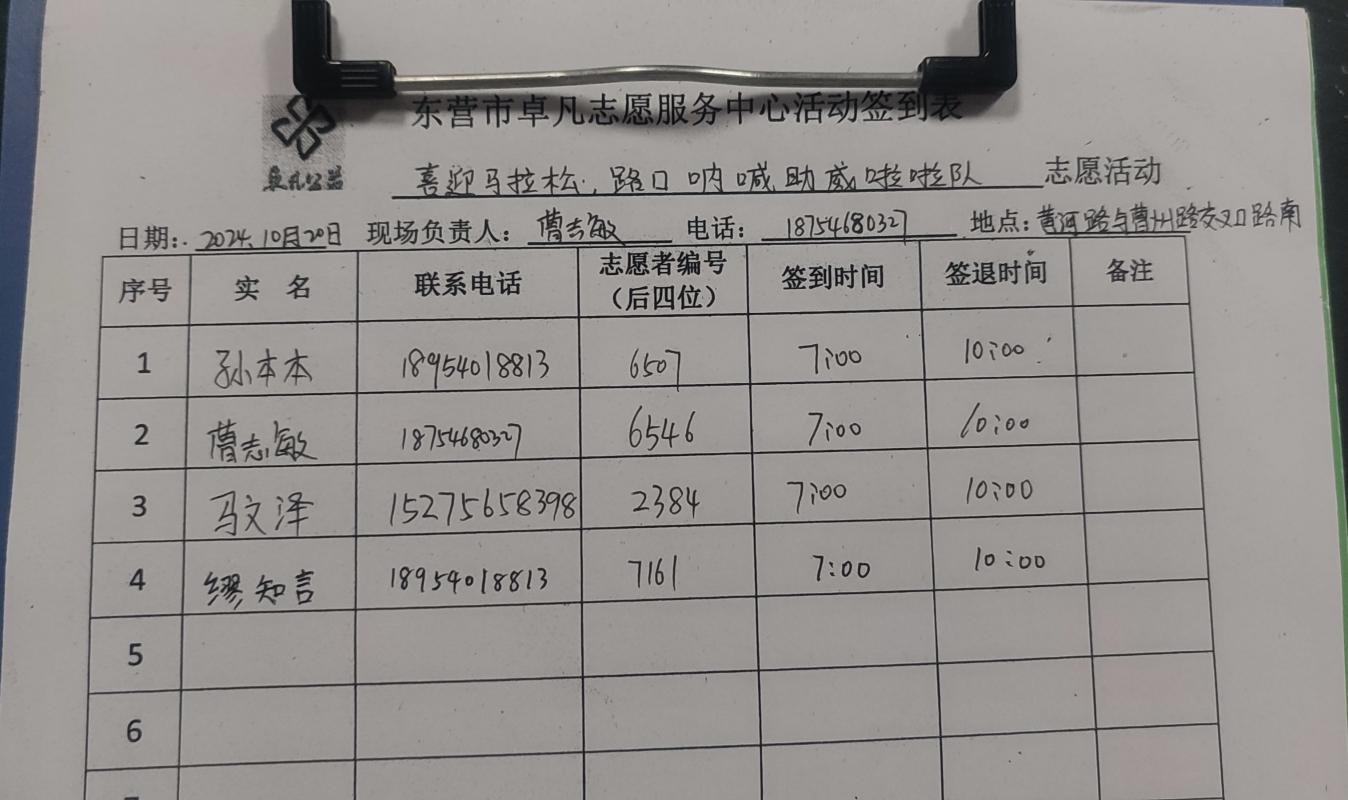 东营市卓凡志愿服务中心活动签到表
卓凡公益
喜迎马拉松,路口呐喊助威啦啦队 志愿活动
日期:. 2024.10月20日 现场负责人: 曹志敏 电话: 18754680327 地点: 黄河路与曹州路交叉口路南
序号 实 名 联系电话 志愿者编号 签到时间 签退时间 备注
(后四位)
1 孙本本 18954018813 6507 7:00 10:00
2 曹志敏 18754680327 6546 7:00 10:00
3 马文泽 15275658398 2384 7:00 10:00
4 缪知言 18954018813 7161 7:00 10:00
5
6